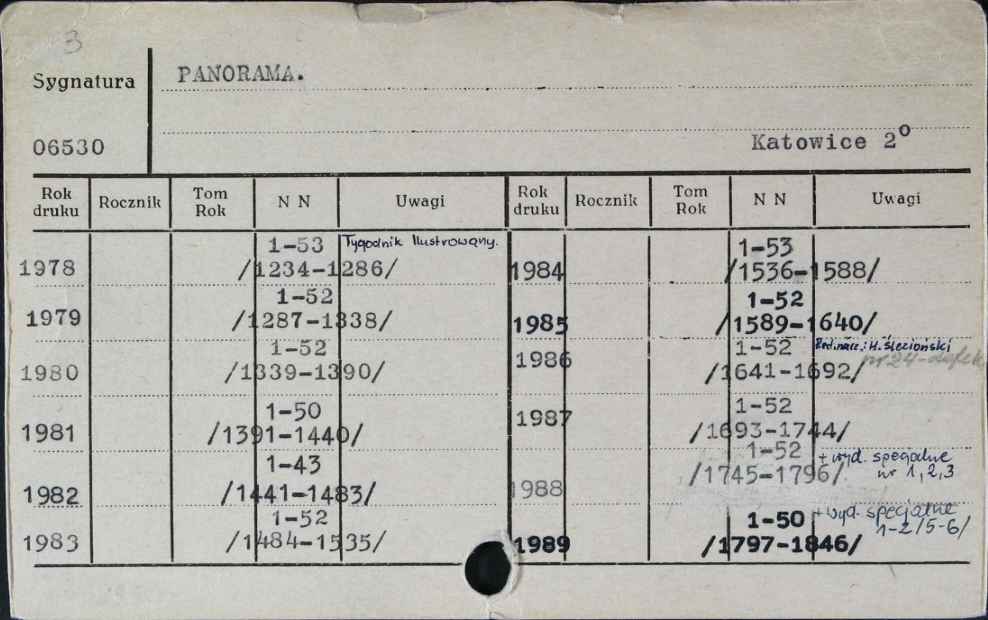 3
Sygnatura PANORAMA.
06530 Katowice 2°
Rok druku Rocznik Tom Rok N N Uwagi Rok druku Rocznik Tom Rok N N Uwagi
1978 1-53 /1234-1286/ Tygodnik Ilustrowany.
1979 1-52 /1287-1338/
1980 1-52 /1339-1390/
1981 1-50 /1391-1440/
1982 1-43 /1441-1483/
1983 1-52 /1484-1535/
1984 1-53 /1536-1588/
1985 1-52 /1589-1640/
1986 1-52 /1641-1692/ Red. nacz.: H. nr 24-defekt
1987 1-52 /1693-1744/
1988 1-52 /1745-1796/ + wyd. specjalne nr 1,2,3
1989 1-50 /1797-1846/ + wyd. specjalne 1-2/5-6/